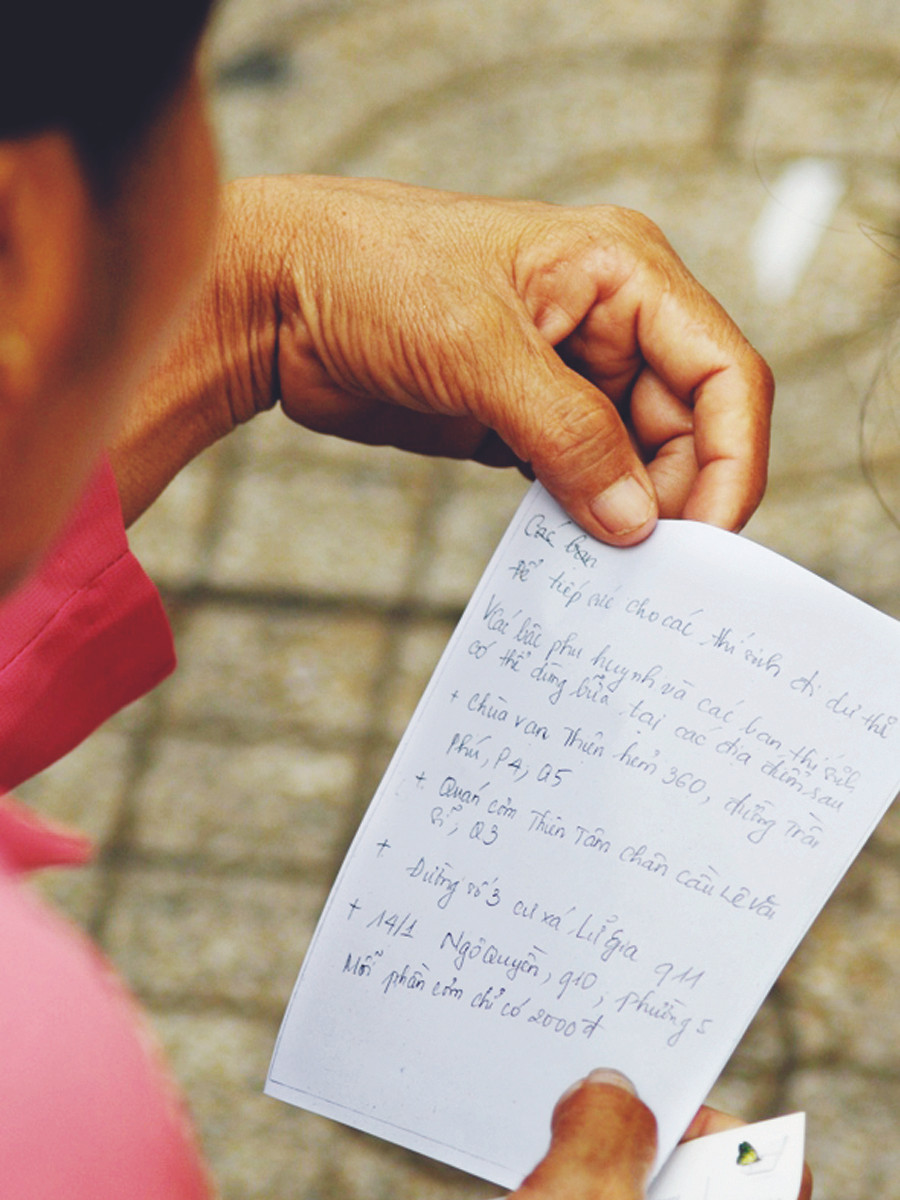 Các bạn
Để tiếp sức cho các thí sinh đi dự thi
Các bậc phụ huynh và các bạn thí sinh
có thể dùng bữa tại các địa điểm sau
+ Chùa vạn Thiện hẻm 360, đường Trần
Phú, P4, Q5
+ Quán cơm Thiện Tâm chân cầu Lê Văn
Sĩ, Q3
+ Đường số 3 cư xá Lữ Gia q11
+ 14/1 Ngô Quyền, q10, phường 5
Mỗi phần cơm chỉ có 2000đ